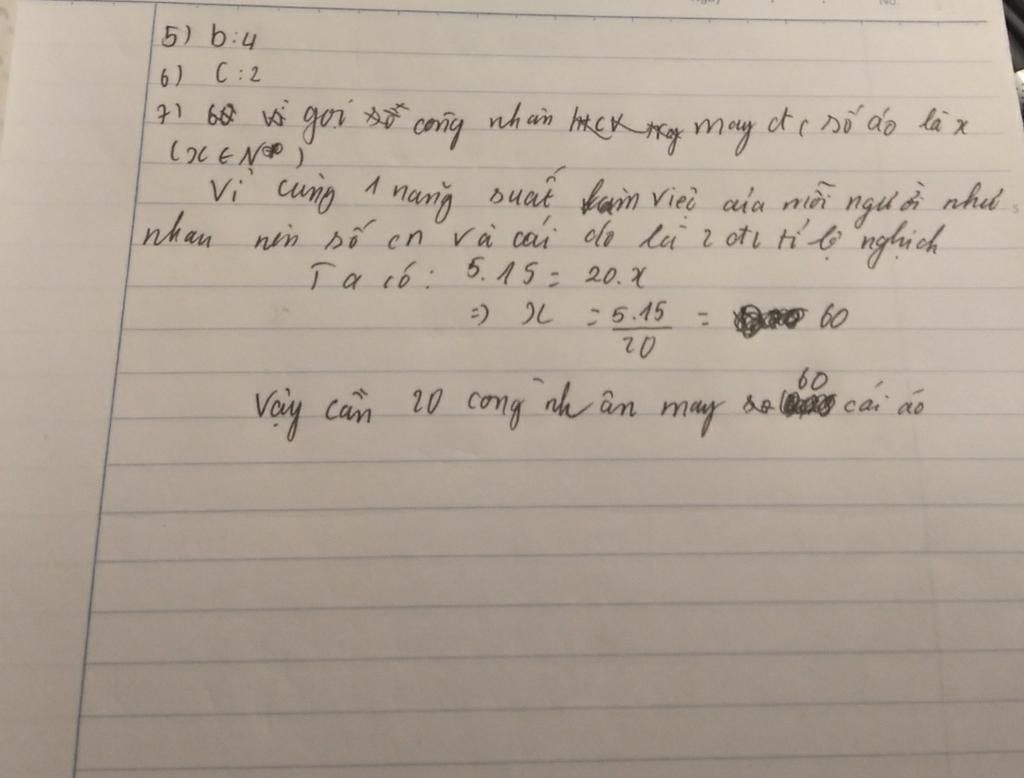 5) b:4
6) C:2
7) gọi công nhân may đc số áo là x
(x ∈ N)
Vì cùng 1 năng suất làm việc của mỗi người như
nhau nên số cn và cái áo là 2 đtl tỉ lệ nghịch
Ta có: 5.15 = 20.x
=> x = 5.15/20 = 60
60
Vậy cần 20 công nhân may cái áo